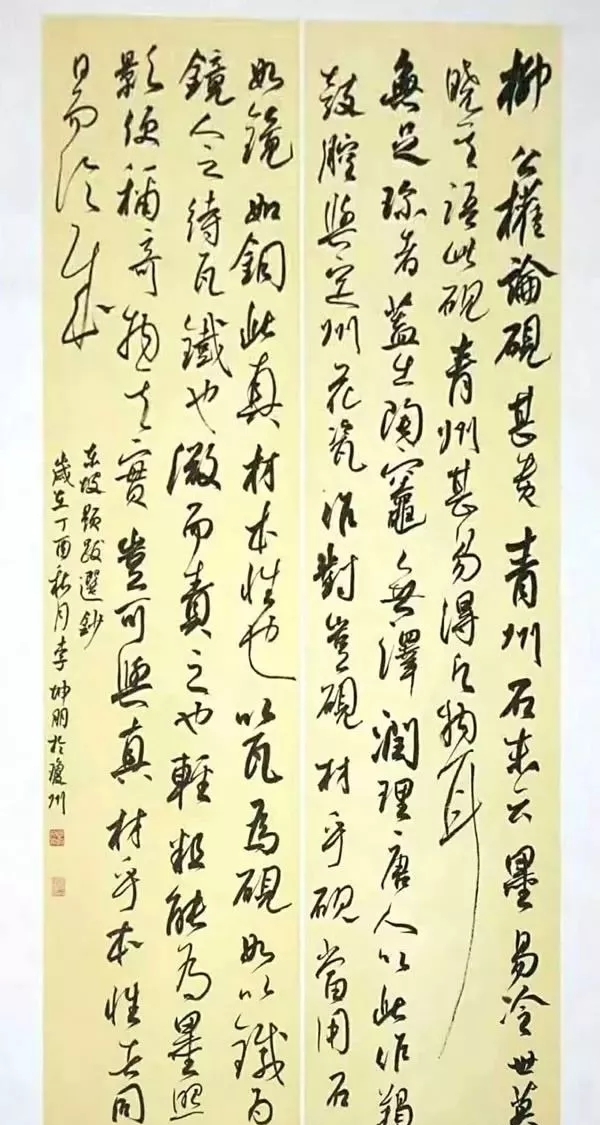 柳公權論硯甚貴青州石末云墨易冷世莫
曉其語此硯青州甚易得凡物耳
無足珍者蓋出陶竈無澤潤理唐人以此作羯
鼓腔與定州花瓷作對豈硯材乎硯當用石
如鏡如銅此真材本性也以瓦為硯如以鐵為
鏡人之待瓦鐵也微而責之也輕粗能為墨照
影便稱奇物其實豈可與真材乎本性者同
日而論哉
东坡題跋選鈔
歲在丁酉秋月李坤朋於瓊州